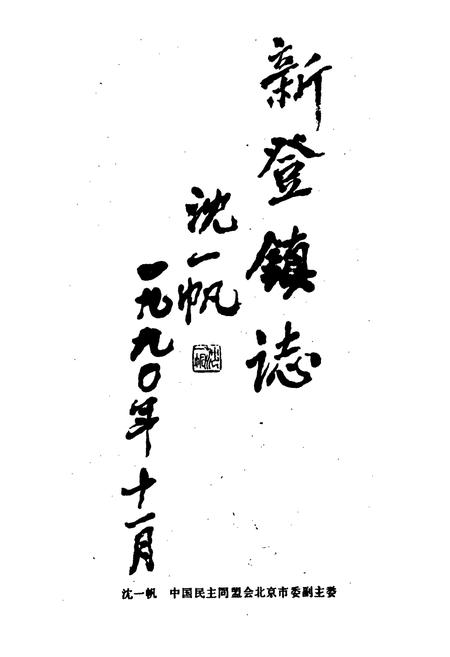 新登鎮誌
沈一帆
一九九〇年十一月
沈一帆
沈一帆 中国民主同盟会北京市委副主委